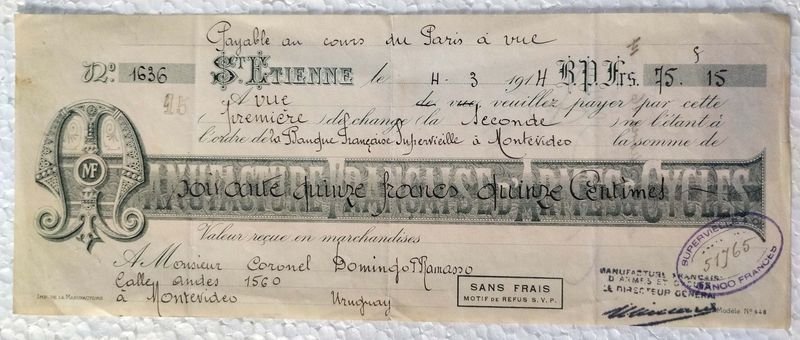 Payable au cours du Paris à vue
No. 1636 St. Etienne le 4 3 1914 B.P. Frs. 75. 15
A vue de vue veuillez payer par cette
première de change (la Seconde ) ne l'étant à
l'ordre de la Banque Française Supervielle à Montevideo la somme de
MF
MANUFACTURE FRANÇAISE D'ARMES & CYCLES
soixante quinze francs quinze Centimes
Valeur reçue en marchandises
A Monsieur Coronel Domingo Mamasso
Calle andes 1560
à Montevideo Uruguay
SANS FRAIS
MOTIF DE REFUS S.V.P.
SUPERVIELLE
51765
BANCO FRANCES
MANUFACTURE FRANÇAISE
D'ARMES ET CYCLES
LE DIRECTEUR GÉNÉRAL
IMP. DE LA MANUFACTURE
Modèle No 448